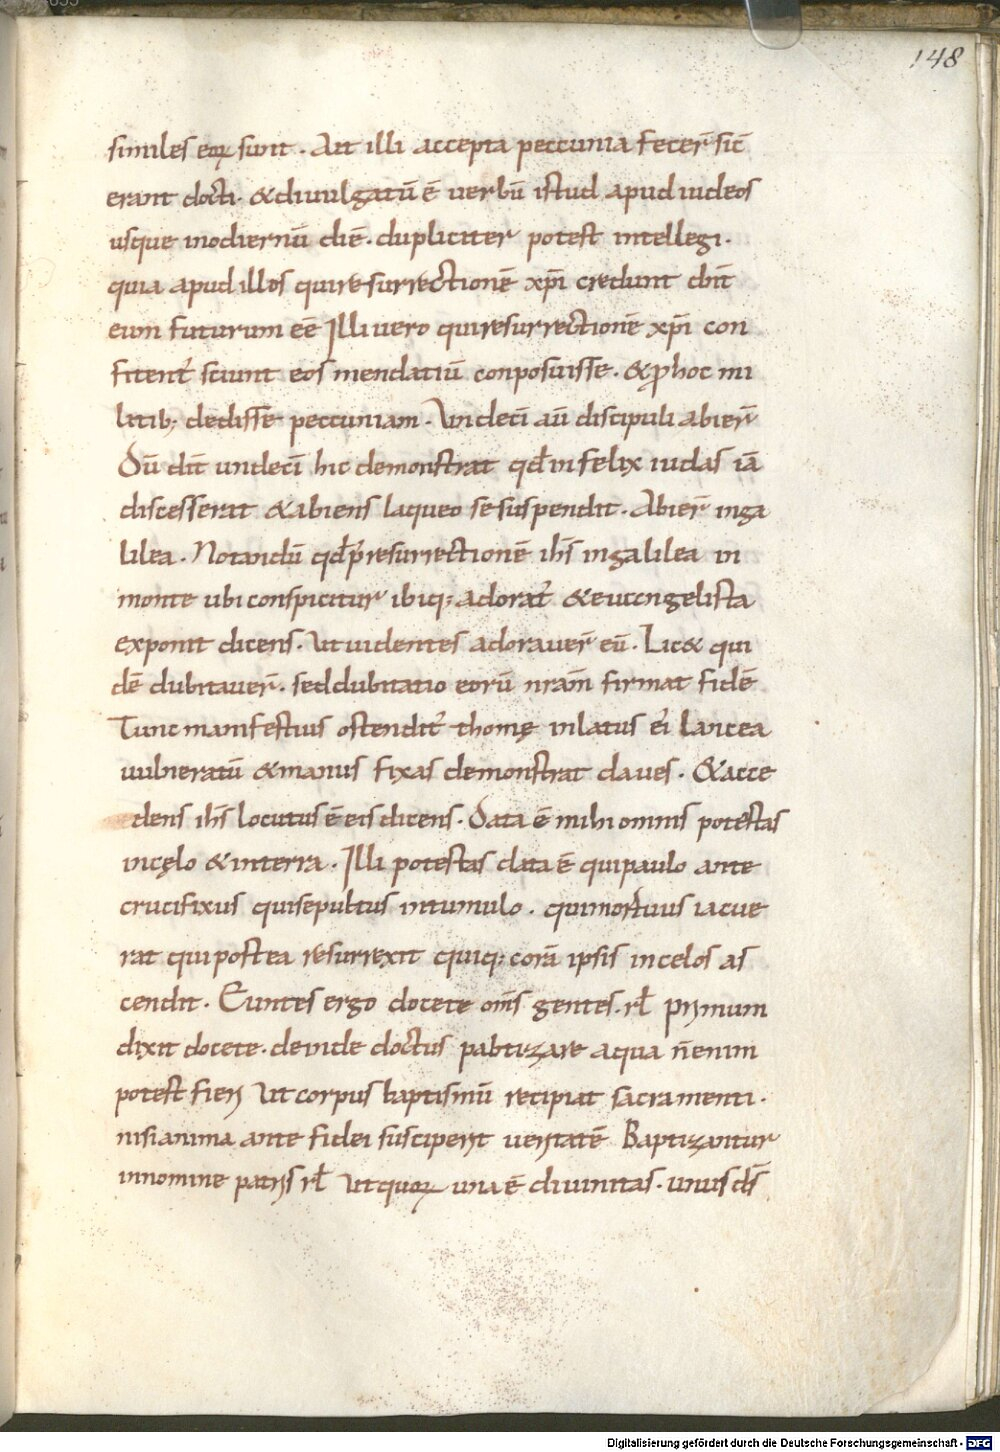 148
similes eoꝝ sunt . At illi accepta peccunia fecer̄ sic̄
erant docti . & diuulgatū ē uerbū istud apud iudeos
usque inodiernū diē . dupliciter potest intellegi .
quia apud illos qui resurrectionē xp̄i credunt dn̄t
eum futurum eē Illi uero qui resurrectionē xp̄i con
fitent̄ sciunt eos mendatiū conposuisse . & ꝓ hoc mi
litib; dedisse peccuniam . Undeci aū discipuli abier̄
Dū dīt undeci hic demonstrat qđ infelix iudas iā
discesserat & abiens laqueo se suspendit . Abier̄ inga
lilea . Notandū qđ p̄ resurrectionē ih̄s in galilea in
monte ubi conspicitur ibiq; adorat̄ & euangelista
exponit dicens . Ut uidentes adorauer̄ eū . Lic& qui
dē dubitauer̄ . sed dubitatio eorū nr̄am firmat fidē
Tunc manifestius ostendit̄ thomę inlatus ei lancea
uulneratū & manus fixas demonstrat claues . & acce
dens ih̄s locutus ē eis dicens . Data ē mihi omnis potestas
incęlo & interra . Illi potestas data ē qui paulo ante
crucifixus qui sepultus intumulo . qui mortuus iacue
rat qui postea resurrexit quiq; corā ipsis in celos as
cendit . Euntes ergo docete om̄s gentes . rł primum
dixit docete . deinde doctus pabtizare aqua n̄ enim
potest fieri Ut corpus baptismū recipiat sacramenti .
nisi anima ante fidei susciperit ueritatē Baptizantur
innomine patris rł Ut quoꝝ una ē diuinitas . unus ds̄
Digitalisierung gefördert durch die Deutsche Forschungsgemeinschaft - DFG